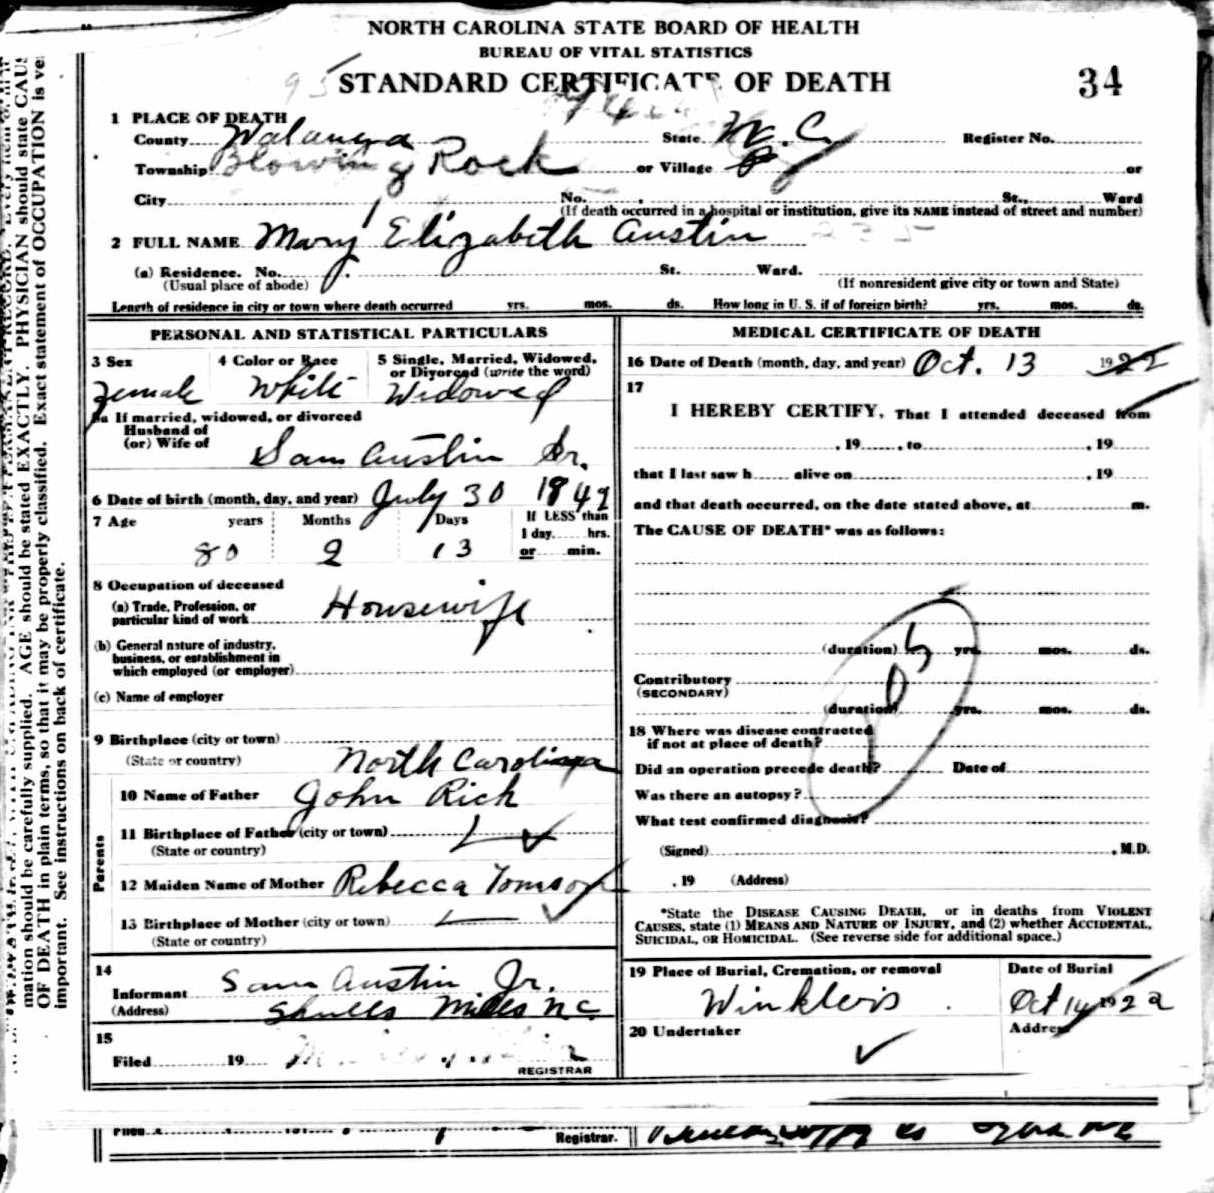 NORTH CAROLINA STATE BOARD OF HEALTH
BUREAU OF VITAL STATISTICS
95 STANDARD CERTIFICATE OF DEATH 34
1 PLACE OF DEATH
County Watauga State N. C. Register No.
Township Blowing Rock or Village or
City No. St., Ward
(If death occurred in a hospital or institution, give its NAME instead of street and number)
2 FULL NAME Mary Elizabeth Austin 235
(a) Residence. No. St. Ward.
(Usual place of abode) (If nonresident give city or town and State)
Length of residence in city or town where death occurred yrs. mos. ds. How long in U. S. if of foreign birth? yrs. mos. ds.
PERSONAL AND STATISTICAL PARTICULARS
3 Sex 4 Color or Race 5 Single, Married, Widowed, or Divorced (write the word)
Female White Widowed
5a If married, widowed, or divorced
Husband of
(or) Wife of Sam Austin Sr.
6 Date of birth (month, day, and year) July 30 1842
7 Age years Months Days If LESS than
1 day hrs.
80 2 13 or min.
8 Occupation of deceased
(a) Trade, Profession, or
particular kind of work Housewife
(b) General nature of industry,
business, or establishment in
which employed (or employer)
(c) Name of employer
9 Birthplace (city or town)
(State or country) North Carolina
Parents
10 Name of Father John Rich
11 Birthplace of Father (city or town)
(State or country)
12 Maiden Name of Mother Rebecca Tomson
13 Birthplace of Mother (city or town)
(State or country)
14
Informant Sam Austin Jr.
(Address) Shulls Mills N C.
15
Filed 19
REGISTRAR
MEDICAL CERTIFICATE OF DEATH
16 Date of Death (month, day, and year) Oct. 13 1922
17
I HEREBY CERTIFY, That I attended deceased from
, 19 , to , 19
that I last saw h alive on , 19
and that death occurred, on the date stated above, at m.
The CAUSE OF DEATH* was as follows:
(duration) yrs. mos. ds.
205
Contributory
(SECONDARY)
(duration) yrs. mos. ds.
18 Where was disease contracted
if not at place of death?
Did an operation precede death? Date of
Was there an autopsy?
What test confirmed diagnosis?
(Signed) , M.D.
, 19 (Address)
*State the DISEASE CAUSING DEATH, or in deaths from VIOLENT
CAUSES, state (1) MEANS AND NATURE OF INJURY, and (2) whether ACCIDENTAL,
SUICIDAL, OR HOMICIDAL. (See reverse side for additional space.)
19 Place of Burial, Cremation, or removal Date of Burial
Winklers Oct 14 1922
20 Undertaker Address
Registrar.
mation should be carefully supplied. AGE should be stated EXACTLY. PHYSICIAN should state CAUS
OF DEATH in plain terms, so that it may be properly classified. Exact statement of OCCUPATION is ve
important. See instructions on back of certificate.